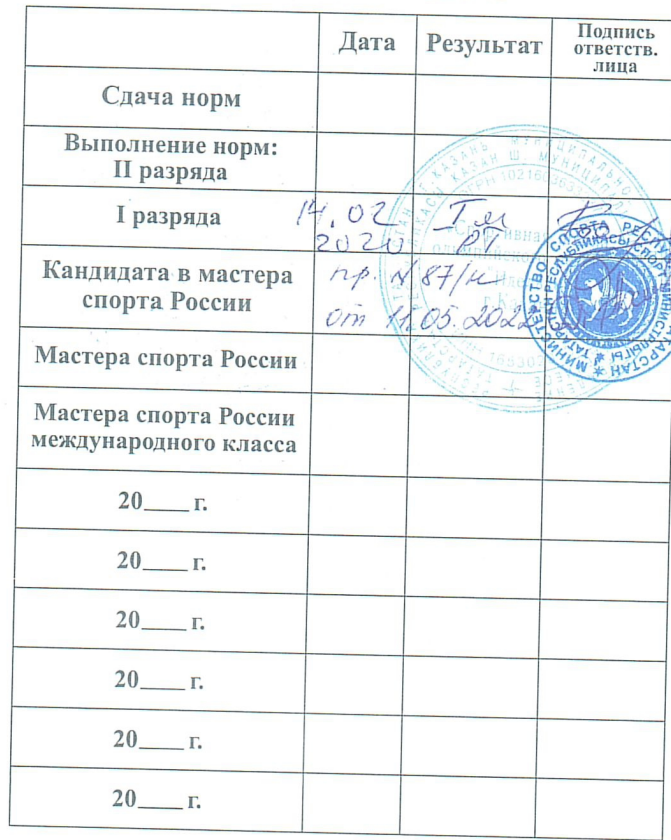 Дата Результат Подпись
ответств.
лица
Сдача норм
Выполнение норм:
II разряда
I разряда 14.02 I м
2020 РТ
Кандидата в мастера пр. № 87/н
спорта России от 11.05.2022
Мастера спорта России
Мастера спорта России
международного класса
20___ г.
20___ г.
20___ г.
20___ г.
20___ г.
20___ г.
МИНИСТЕРСТВО СПОРТА РЕСПУ
ТАТАРСТАН РЕСПУБЛИКАСЫ СПОРТ МИНИСТРЛЫГЫ